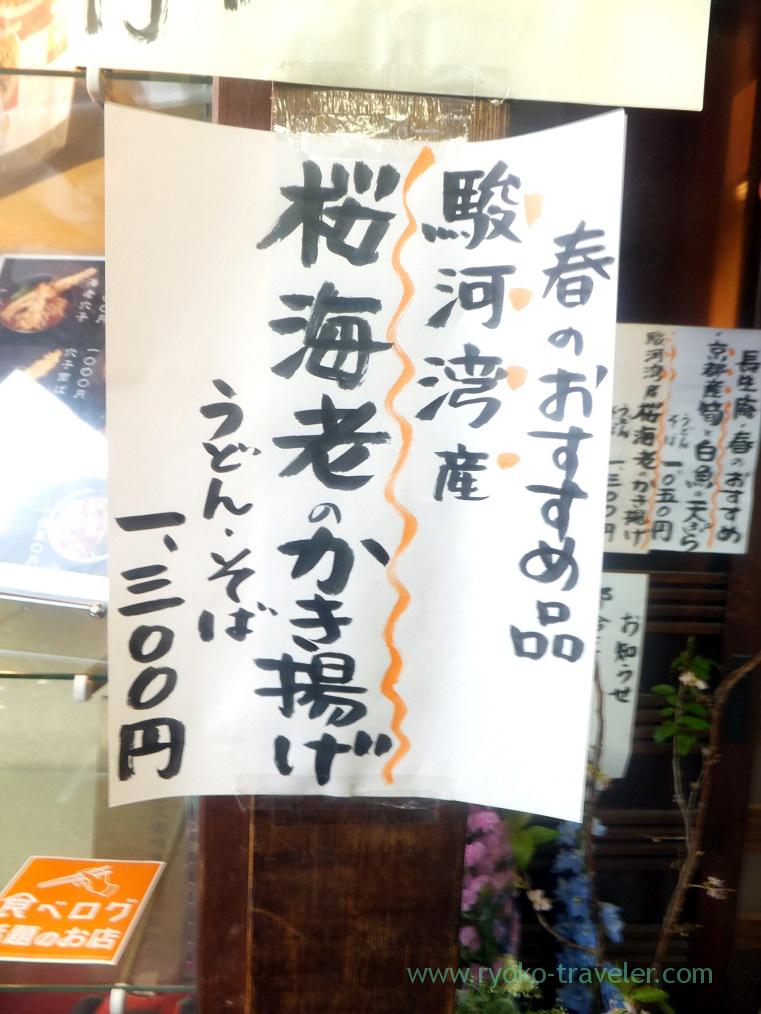 春のおすすめ品
駿河湾産
桜海老のかき揚げ
うどん・そば
一、三〇〇円
長生庵・春のおすすめ
・京都産筍と白魚の天ぷら
うどん
そば
一〇五〇円
駿河湾産桜海老のかき揚げ
うどん
一、三〇〇円
お知らせ
海老穴子
穴子南蛮
1000円
食べログ
話題のお店
www.ryoko-traveler.com